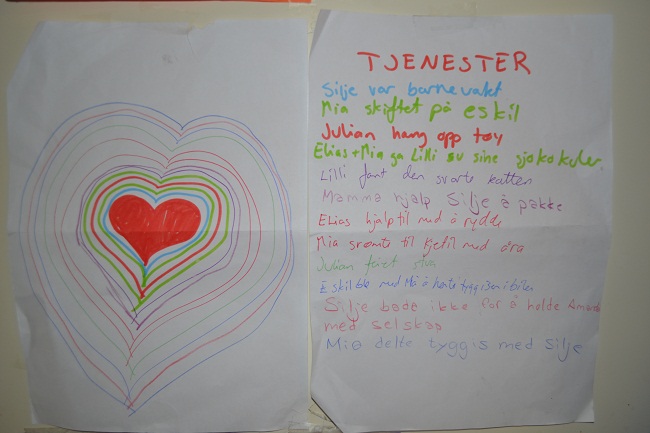 TJENESTER
Silje var barnevakt
Mia skiftet på eskil
Julian hang opp tøy
Elias + Mia ga Lilli av sine sjokokuler
Lilli fant den svarte katten
Mamma hjalp Silje å pakke
Elias hjalp til med å rydde
Mia svømte til Kjetil med
Julian feiet
Eskil ble med Mia å hente tyggisen i bilen
Silje bada ikke for å holde Amanda
med selskap
Mia delte tyggis med Silje